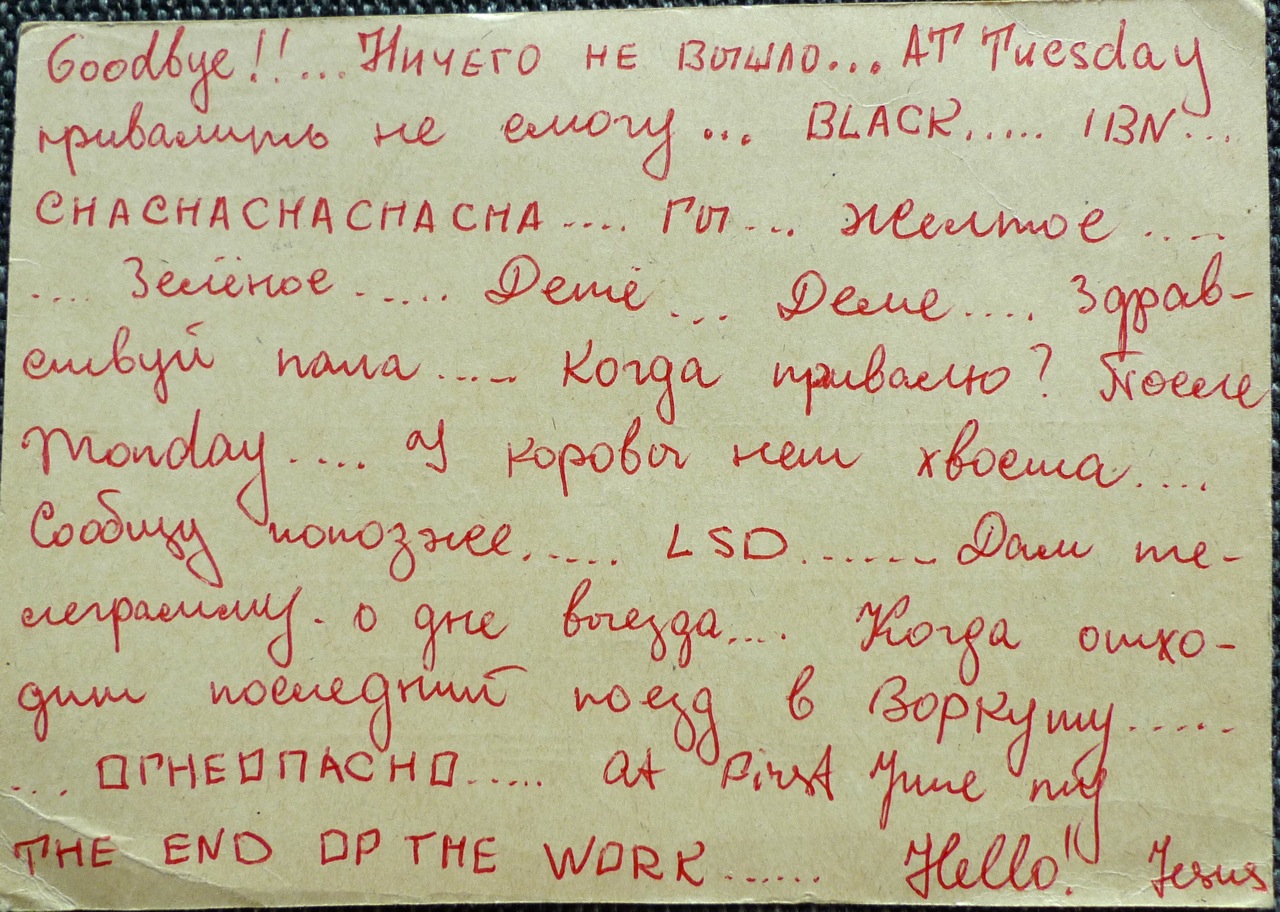 Goodbye!!... Ничего не вышло... AT Tuesday
привалить не смогу... BLACK..... IBN...
СНАСНАСНАСНАСНА.... ГЫ... Желтое ....
.... Зелёное ...... Детё... Деме.... Здрав-
ствуй папа..... Когда привалю? После
Monday.... У коровы нет хвоста....
Сообщу попозже...... LSD....... Дам те-
леграмму. о дне выезда.... Когда отхо-
дит последний поезд в Воркуту......
.... ОГНЕОПАСНО..... at first June my
THE END OF THE WORK...... Hello!! Jesus